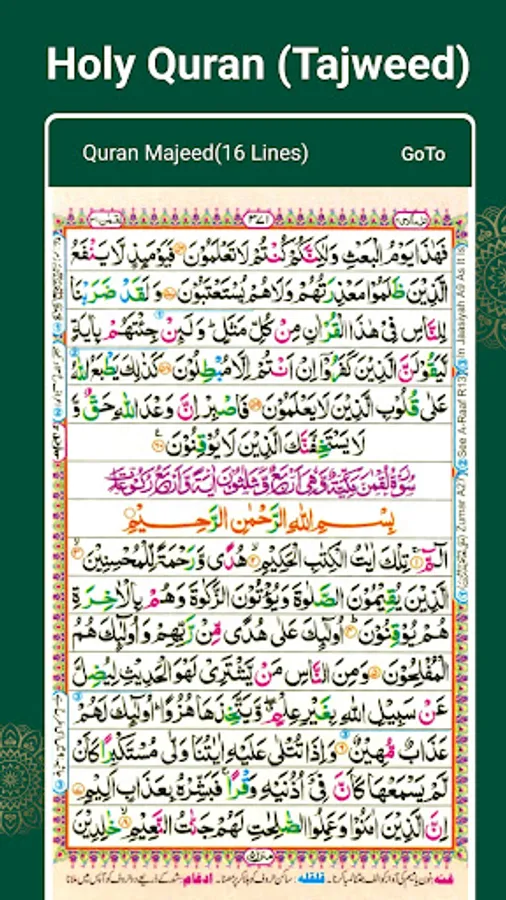 Holy Quran (Tajweed)
Quran Majeed(16 Lines)
GoTo
٣٧١
فَهٰذَا يَوْمُ الْبَعْثِ وَلٰكِنَّكُمْ كُنْتُمْ لَا تَعْلَمُوْنَ ۝ فَيَوْمَئِذٍ لَّا يَنْفَعُ
الَّذِيْنَ ظَلَمُوْا مَعْذِرَتُهُمْ وَلَا هُمْ يُسْتَعْتَبُوْنَ ۝ وَلَقَدْ ضَرَبْنَا
لِلنَّاسِ فِيْ هٰذَا الْقُرْاٰنِ مِنْ كُلِّ مَثَلٍ ؕ وَلَئِنْ جِئْتَهُمْ بِاٰيَةٍ
لَّيَقُوْلَنَّ الَّذِيْنَ كَفَرُوْۤا اِنْ اَنْتُمْ اِلَّا مُبْطِلُوْنَ ۝ كَذٰلِكَ يَطْبَعُ اللّٰهُ
عَلٰى قُلُوْبِ الَّذِيْنَ لَا يَعْلَمُوْنَ ۝ فَاصْبِرْ اِنَّ وَعْدَ اللّٰهِ حَقٌّ وَّ
لَا يَسْتَخِفَّنَّكَ الَّذِيْنَ لَا يُوْقِنُوْنَ ۝
سُوْرَةُ لُقْمٰنَ مَكِّيَّةٌ وَّهِىَ اَرْبَعٌ وَّثَلٰثُوْنَ اٰيَةً وَّاَرْبَعُ رُكُوْعَاتٍ
بِسْمِ اللّٰهِ الرَّحْمٰنِ الرَّحِيْمِ
الٓمّٓ ۝ تِلْكَ اٰيٰتُ الْكِتٰبِ الْحَكِيْمِ ۝ هُدًى وَّرَحْمَةً لِّلْمُحْسِنِيْنَ ۝
الَّذِيْنَ يُقِيْمُوْنَ الصَّلٰوةَ وَيُؤْتُوْنَ الزَّكٰوةَ وَهُمْ بِالْاٰخِرَةِ
هُمْ يُوْقِنُوْنَ ۝ اُولٰٓئِكَ عَلٰى هُدًى مِّنْ رَّبِّهِمْ وَاُولٰٓئِكَ هُمُ
الْمُفْلِحُوْنَ ۝ وَمِنَ النَّاسِ مَنْ يَّشْتَرِيْ لَهْوَ الْحَدِيْثِ لِيُضِلَّ
عَنْ سَبِيْلِ اللّٰهِ بِغَيْرِ عِلْمٍ ۖ وَّيَتَّخِذَهَا هُزُوًا ؕ اُولٰٓئِكَ لَهُمْ
عَذَابٌ مُّهِيْنٌ ۝ وَاِذَا تُتْلٰى عَلَيْهِ اٰيٰتُنَا وَلّٰى مُسْتَكْبِرًا كَاَنْ
لَّمْ يَسْمَعْهَا كَاَنَّ فِيْۤ اُذُنَيْهِ وَقْرًا ۚ فَبَشِّرْهُ بِعَذَابٍ اَلِيْمٍ ۝
اِنَّ الَّذِيْنَ اٰمَنُوْا وَعَمِلُوا الصّٰلِحٰتِ لَهُمْ جَنّٰتُ النَّعِيْمِ ۝ خٰلِدِيْنَ
In Jaasiyah A9 As It Is
See A-Raaf R13
Zumar A27
غنه
قلقله
ادغام